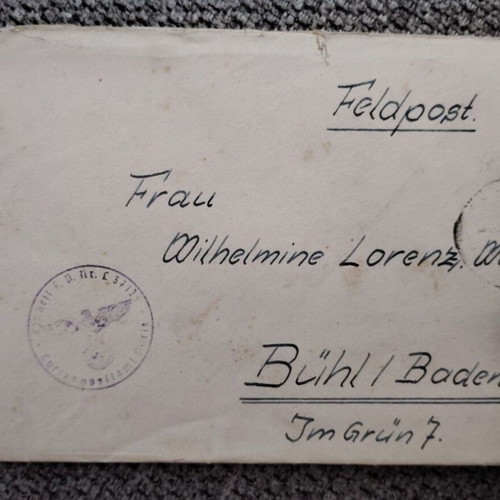 Feldpost.
Frau
Wilhelmine Lorenz,
Bühl / Baden
Im Grün 7.